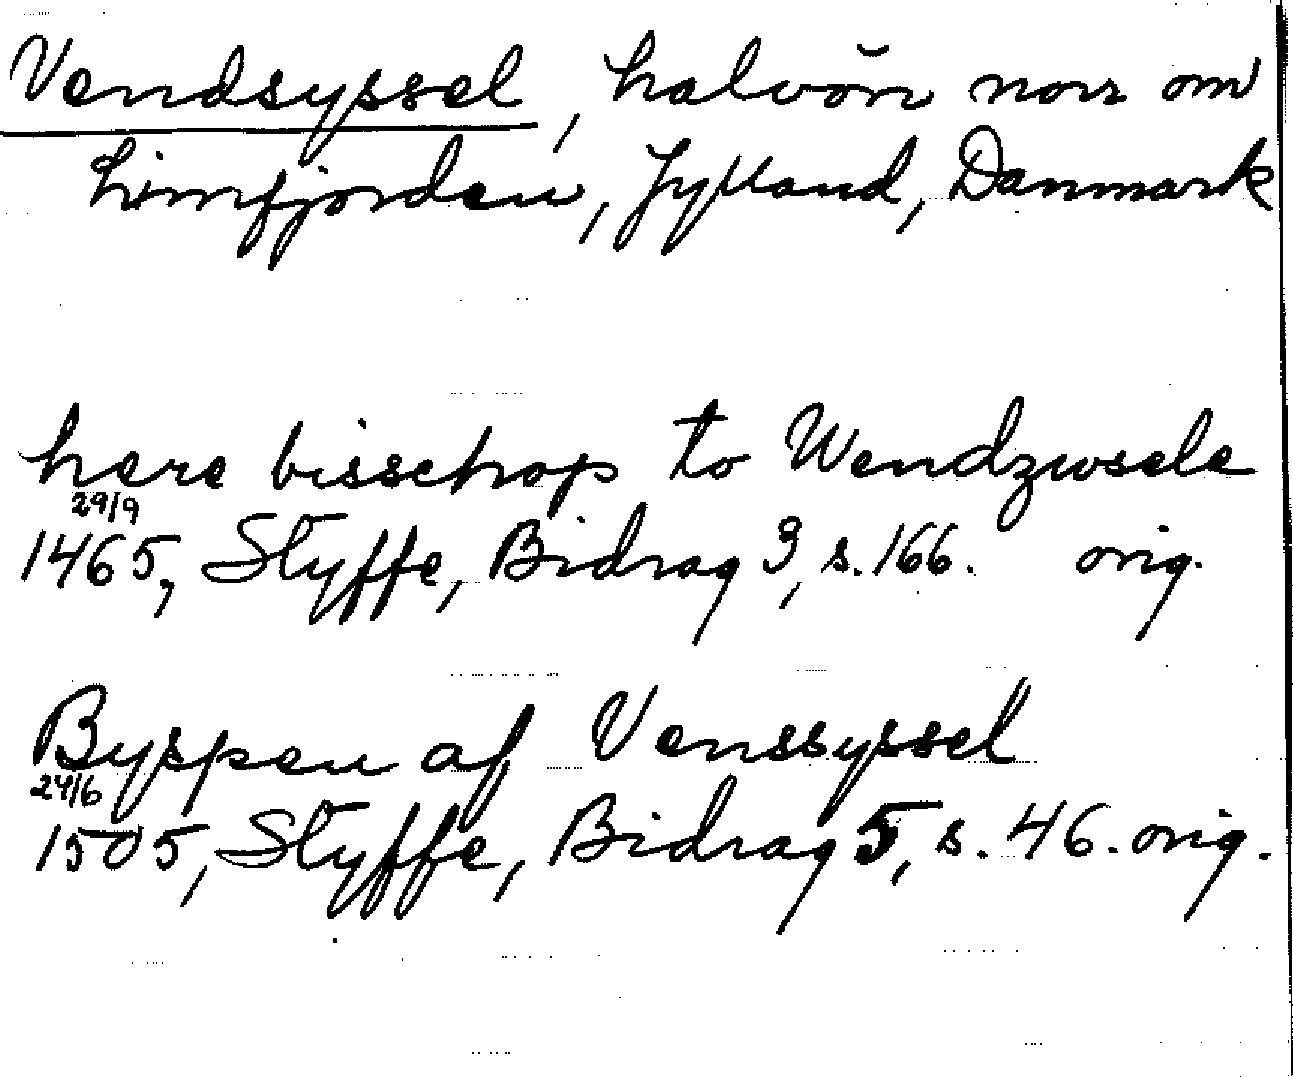 Vendsyssel, halvön norr om
Limfjorden, Jylland, Danmark
here bisschop to Wendzusele
29/9
1465, Styffe, Bidrag 3, s. 166. orig.
Byspen af Venssyssel
24/6
1505, Styffe, Bidrag 5, s. 46. orig.